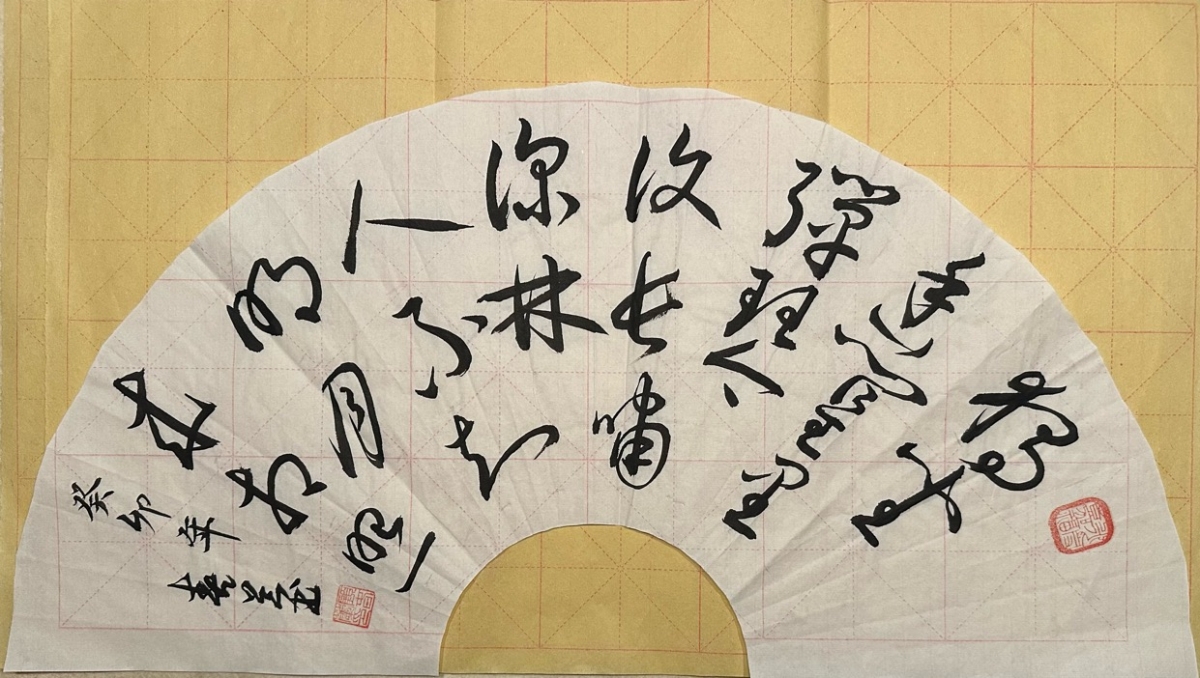 獨坐
幽篁里
彈琴
復長嘯
深林
人不知
明月
來相照
癸卯年